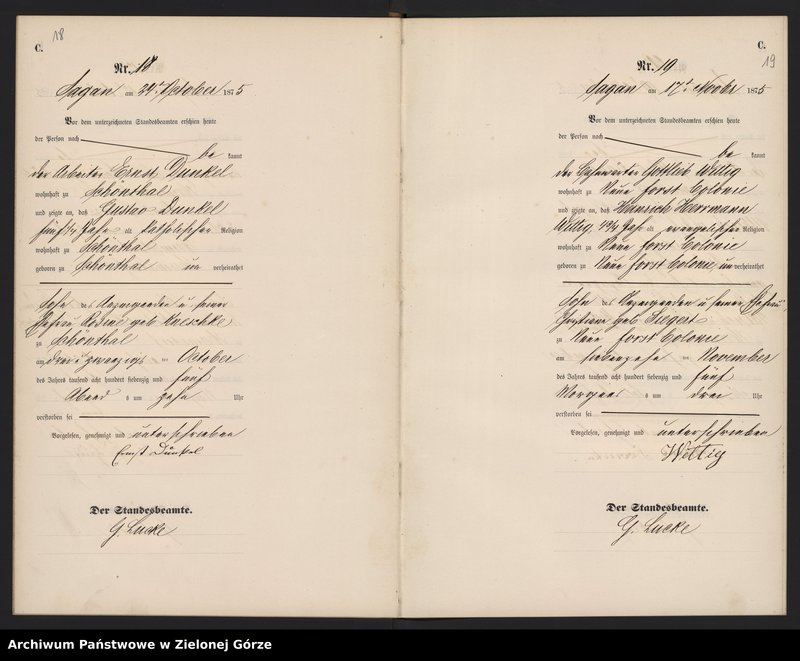 18
C.
Nr. 18
Sagan am 24t October 1875
Vor dem unterzeichneten Standesbeamten erschien heute
der Person nach
be kannt
der Arbeiter Ernst Dunkel
wohnhaft zu Schönthal
und zeigte an, daß Gustav Dunkel
alt katholischer Religion
wohnhaft zu Schönthal
geboren zu Schönthal un verheirathet
Sohn des Anzeigenden u. seiner
Ehefrau Rosine geb Kneschke
zu Schönthal
am drei u zwanzigst October
des Jahrs tausend acht hundert siebenzig und fünf
Abend s um zehn Uhr
verstorben sei
Vorgelesen, genehmigt und unterschrieben
Ernst Dunkel
Der Standesbeamte.
G. Lucke
C.
19
Nr. 19
Sagan am 17t Novbr 1875
Vor dem unterzeichneten Standesbeamten erschien heute
der Person nach
be kannt
der Gottlieb Wittig
wohnhaft zu Neue Forst Colonie
und zeigte an, daß Heinrich Herrmann
Wittig, alt evangelischer Religion
wohnhaft zu Neue Forst Colonie
geboren zu Neue Forst Colonie un verheirathet
Sohn des Anzeigenden u seiner Ehefrau
geb Siegert
zu Neue Forst Colonie
am siebenzehn November
des Jahrs tausend acht hundert siebenzig und fünf
Morgens um drei Uhr
verstorben sei
Vorgelesen, genehmigt und unterschrieben
Wittig
Der Standesbeamte.
G. Lucke
Archiwum Państwowe w Zielonej Górze